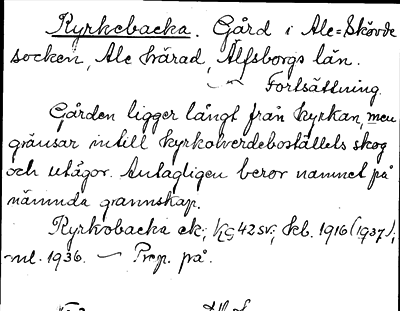 Kyrkebacka. Gård i Ale=Skövde
socken, Ale härad, Älfsborgs län.
Fortsättning.
Gården ligger långt från kyrkan, men
gränsar intill kyrkolverdebostället skog
och utägor. Antagligen beror namnet på
nämnda grannskap.
Kyrkobacka ek; kg 42 sv; skb. 1916 (1937);
ml. 1936. — Prep. på.